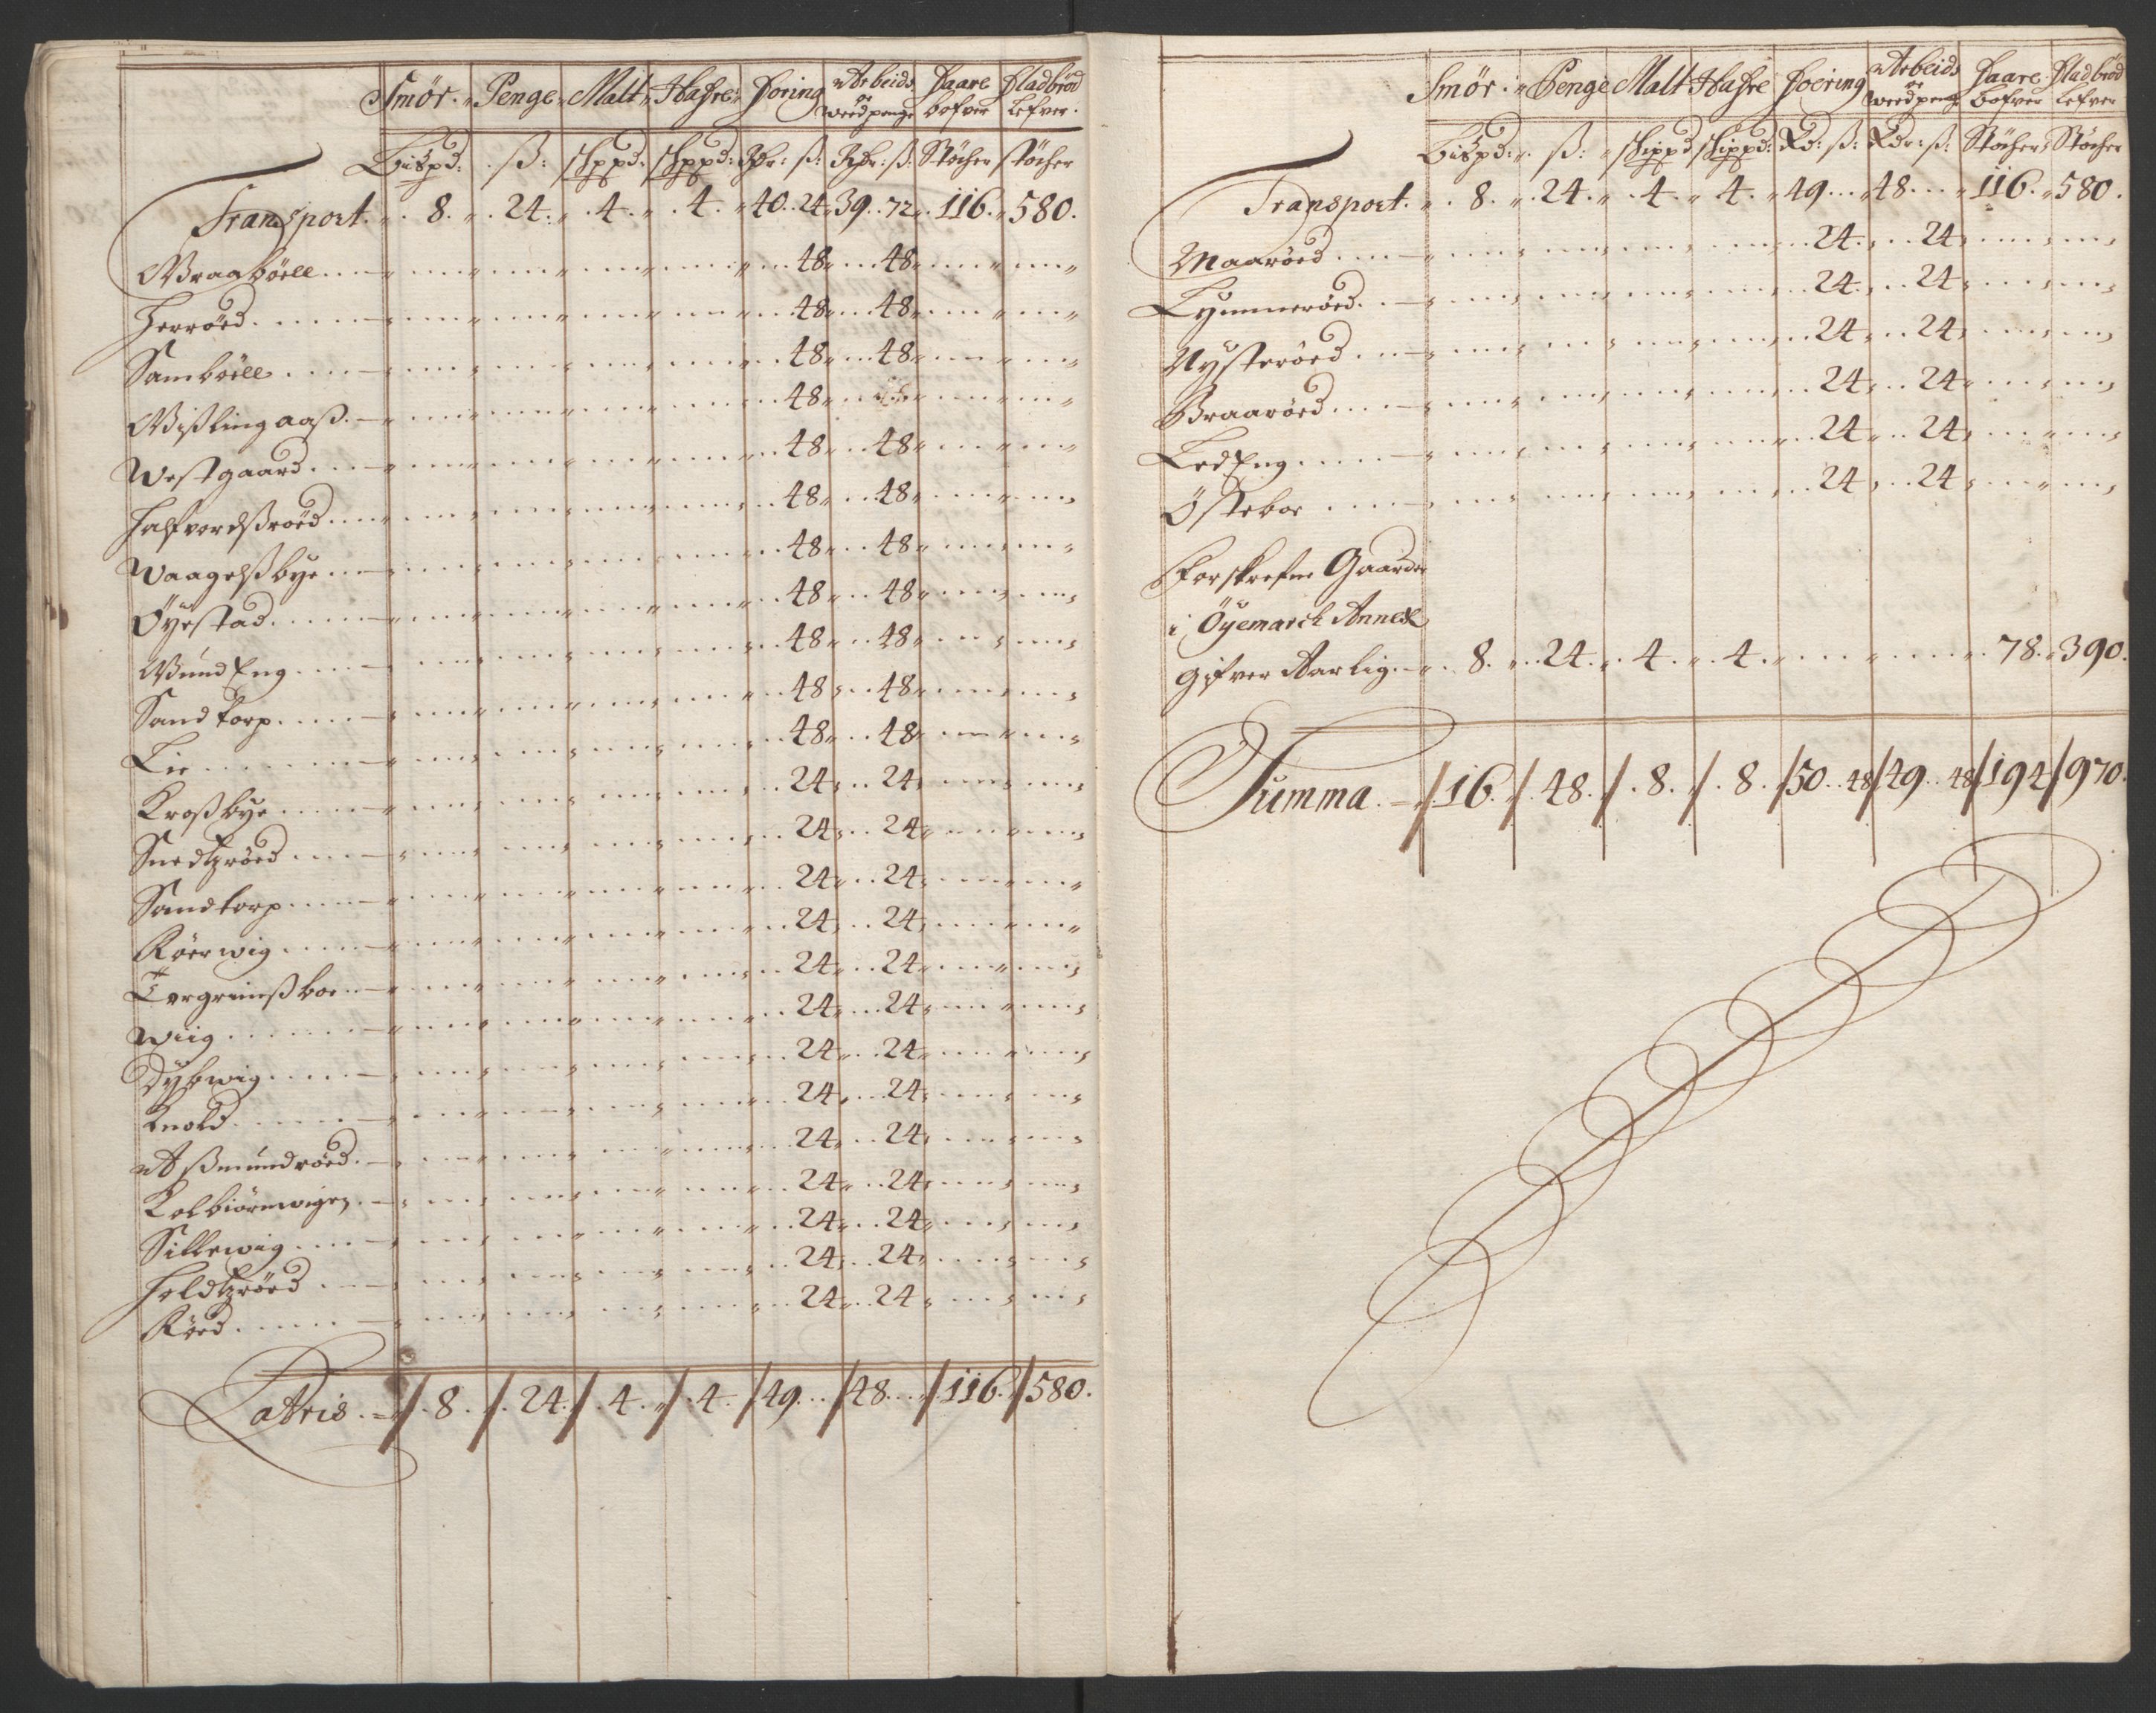 Smör. Penge Malt Hafre Foring Arbeids oc weed penge Haare bofver Fladbröd Lefver.
Bißpd: ß: skppd: skppd: Rdr: ß: Rdr: ß: Støcher støcher
Transport. 8. 24. 4. 4. 40. 24 39. 72 116. 580.
Braaböell 48 48
Herröed 48 48
Samböell 48 48
Wißlingaaß. 48
Westgaard 48 48
Halfvordßröed 48 48
Waagelßbye 48 48
Öÿestad. 48 48
Bund Eng 48 48
Sandtorp 48 48
Lie 48 48
Kroßbye 24 24
Snedtzröed 24 24
Sandtorp 24 24
Röerwig 24 24
Torgrimßboe 24 24
Wiig 24 24
Dÿbwig 24 24
Knold 24 24
Aßmundröed 24 24
Kolbiörnwigen 24 24
Sillewig 24 24
Holdtzröed 24 24
Röed 24 24
Latris. 8. 24. 4. 4. 49. 48. 116. 580.
Smör. Penge Malt Hafre Foering Arbeids oc weed peng Haare bofver Fladbröd Lefver
Bißpd: ß: skippd skippd: Rd: ß: Rdr: ß: Støcher Støcher
Transport. 8. 24. 4. 4. 49. 48. 116. 580.
Maaröed 24 24
Lÿmmeröed 24 24
Nÿsteröed 24 24
Braaröed 24 24
Led Eng 24 24
Östeboe 24 24
Forskrefne Gaarde
i Öÿemarck Annex
gifver Aarlig. 8. 24. 4. 4. 78. 390.
Summa. 16. 48. 8. 8. 50. 48 49. 48 194 970.